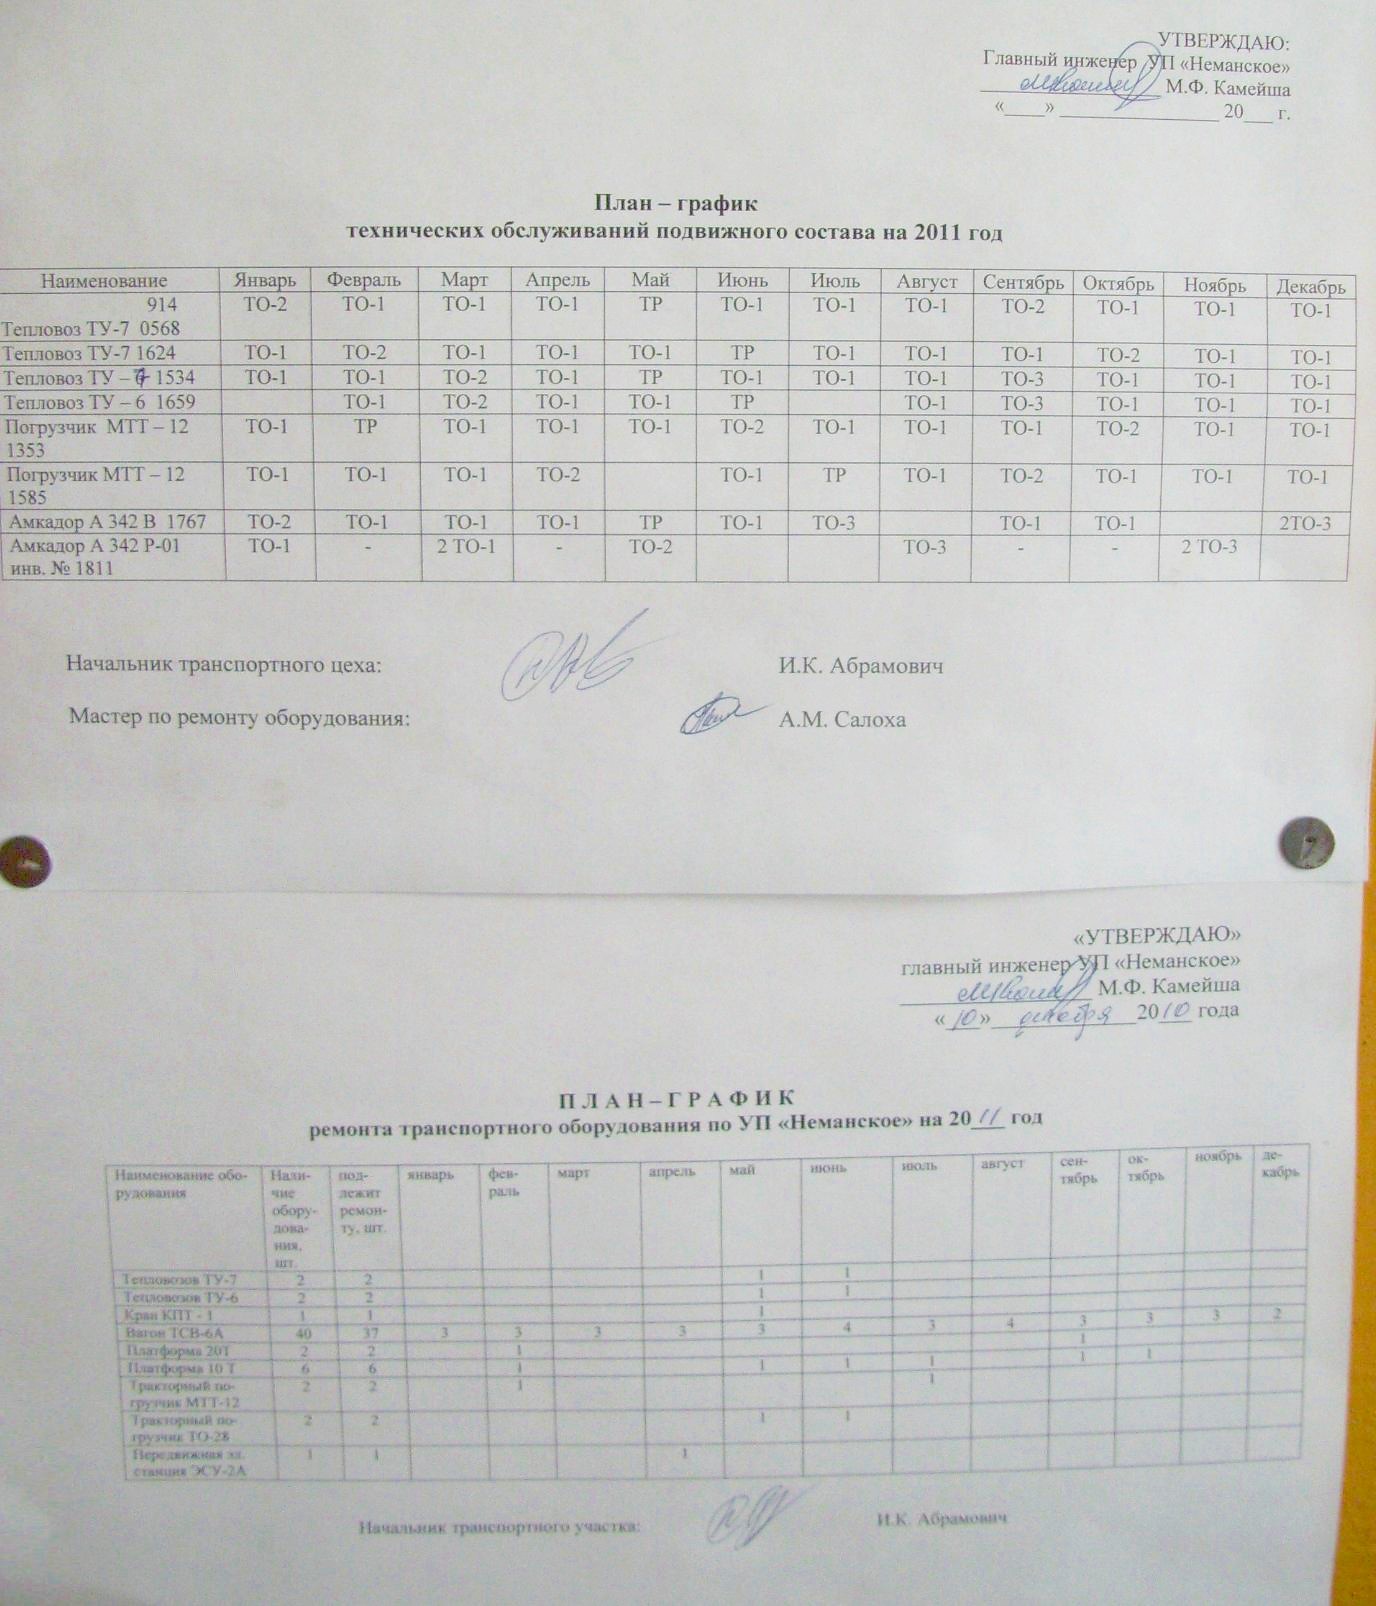 УТВЕРЖДАЮ:
Главный инженер УП «Неманское»
М.Ф. Камейша
«____» ________________ 20___ г.
План – график
технических обслуживаний подвижного состава на 2011 год
Наименование Январь Февраль Март Апрель Май Июнь Июль Август Сентябрь Октябрь Ноябрь Декабрь
914
Тепловоз ТУ-7 0568 ТО-2 ТО-1 ТО-1 ТО-1 ТР ТО-1 ТО-1 ТО-1 ТО-2 ТО-1 ТО-1 ТО-1
Тепловоз ТУ-7 1624 ТО-1 ТО-2 ТО-1 ТО-1 ТО-1 ТР ТО-1 ТО-1 ТО-1 ТО-2 ТО-1 ТО-1
Тепловоз ТУ – 1534 ТО-1 ТО-1 ТО-2 ТО-1 ТР ТО-1 ТО-1 ТО-1 ТО-3 ТО-1 ТО-1 ТО-1
Тепловоз ТУ – 6 1659 ТО-1 ТО-2 ТО-1 ТО-1 ТР ТО-1 ТО-3 ТО-1 ТО-1 ТО-1
Погрузчик МТТ – 12 ТО-1 ТР ТО-1 ТО-1 ТО-1 ТО-2 ТО-1 ТО-1 ТО-1 ТО-2 ТО-1 ТО-1
1353
Погрузчик МТТ – 12 ТО-1 ТО-1 ТО-1 ТО-2 ТО-1 ТР ТО-1 ТО-2 ТО-1 ТО-1 ТО-1
1585
Амкадор А 342 В 1767 ТО-2 ТО-1 ТО-1 ТО-1 ТР ТО-1 ТО-3 ТО-1 ТО-1 2ТО-3
Амкадор А 342 Р-01 ТО-1 - 2 ТО-1 - ТО-2 ТО-3 - - 2 ТО-3
инв. № 1811
Начальник транспортного цеха: И.К. Абрамович
Мастер по ремонту оборудования: А.М. Салоха
«УТВЕРЖДАЮ»
главный инженер УП «Неманское»
М.Ф. Камейша
«10» декабря 2010 года
П Л А Н – Г Р А Ф И К
ремонта транспортного оборудования по УП «Неманское» на 2011 год
Наименование обо- Нали- под- январь фев- март апрель май июнь июль август сен- ок- ноябрь де-
рудования чие лежит раль тябрь тябрь кабрь
обору- ремон-
дова- ту, шт.
ния,
шт.
Тепловозов ТУ-7 2 2 1 1
Тепловозов ТУ-6 2 2 1 1
Кран КПТ - 1 1 1 1
Вагон ТСВ-6А 40 37 3 3 3 3 3 4 3 4 3 3 3 2
Платформа 20Т 2 2 1 1
Платформа 10 Т 6 6 1 1 1 1 1 1
Тракторный по- 2 2 1 1
грузчик МТТ-12
Тракторный по- 2 2 1 1
грузчик ТО-28
Передвижная эл. 1 1 1
станция ЭСУ-2А
Начальник транспортного участка: И.К. Абрамович